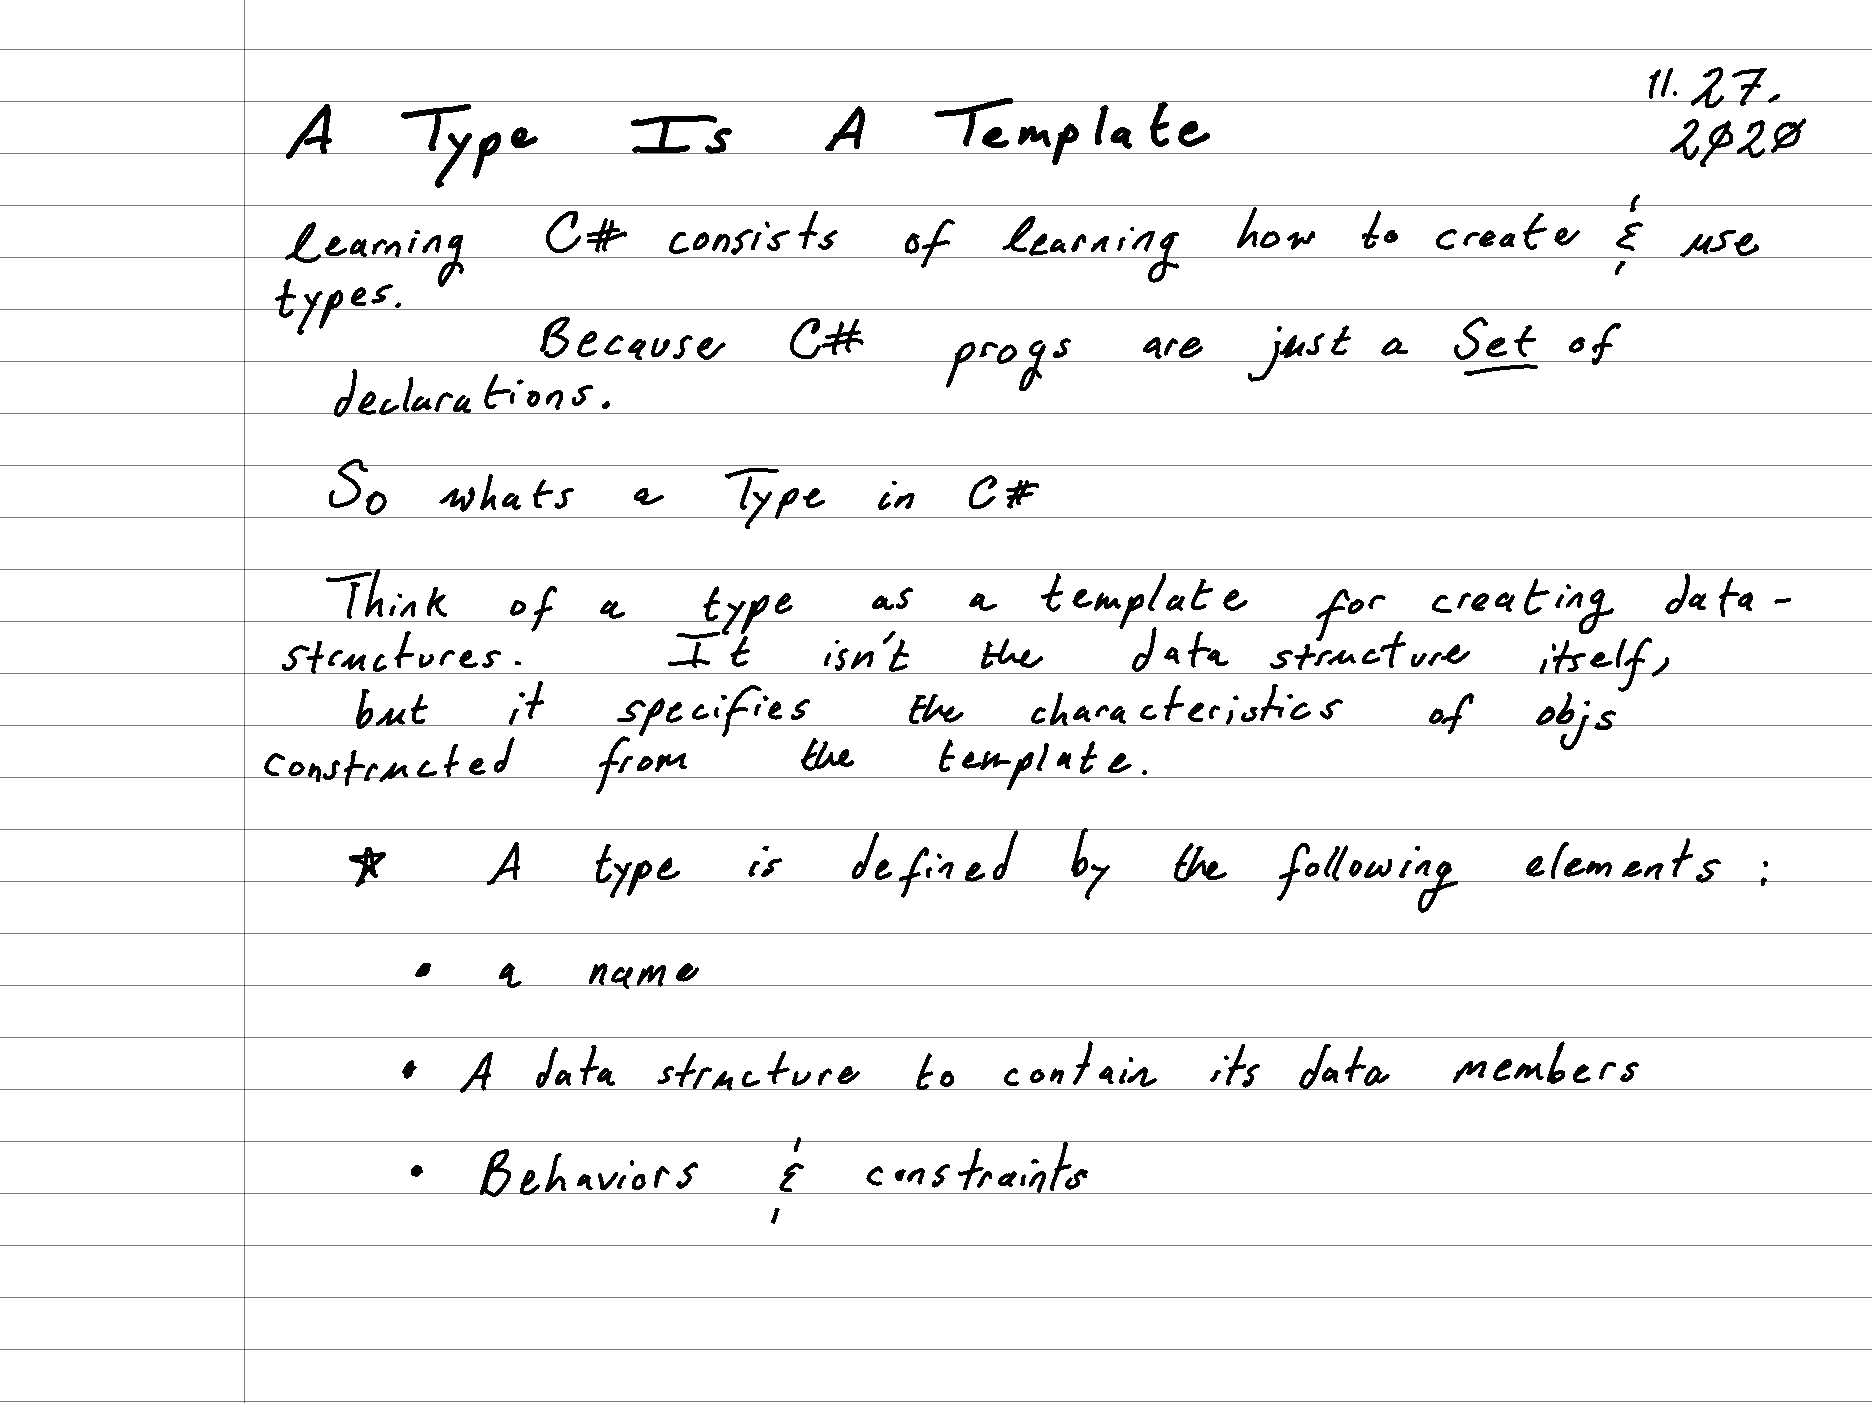 11. 27.
2020
A Type Is A Template
learning C# consists of learning how to create & use
types.
Because C# progs are just a Set of
declarations.
So whats a Type in C#
Think of a type as a template for creating data-
structures. It isn't the data structure itself,
but it specifies the characteristics of objs
constructed from the template.
★ A type is defined by the following elements:
• a name
• A data structure to contain its data members
• Behaviors & constraints